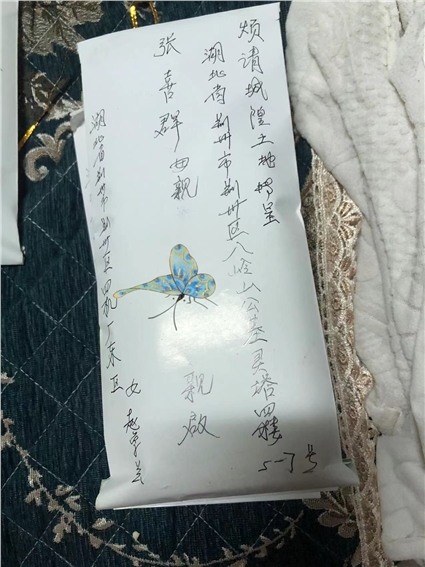 烦请城隍土地呈
湖北省荆州市荆州区八岭山公墓灵塔四楼
5-7号
张喜群母親 親啟
湖北省荆州市荆州区四机厂东区 女